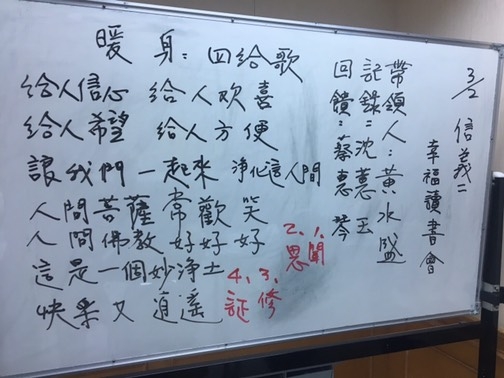 暖身：四給歌
給人信心 給人欢喜
給人希望 給人方便
讓我們一起來 淨化這人間
人間菩薩常歡笑
人間佛教好好好
這是一個妙淨土
快樂又逍遥
3/2 信義二
幸福讀書會
帶領人：黃水盛
記錄：沈蕙玉
回饋：蔡惠琴
1、聞
2、思
3、修
4、証